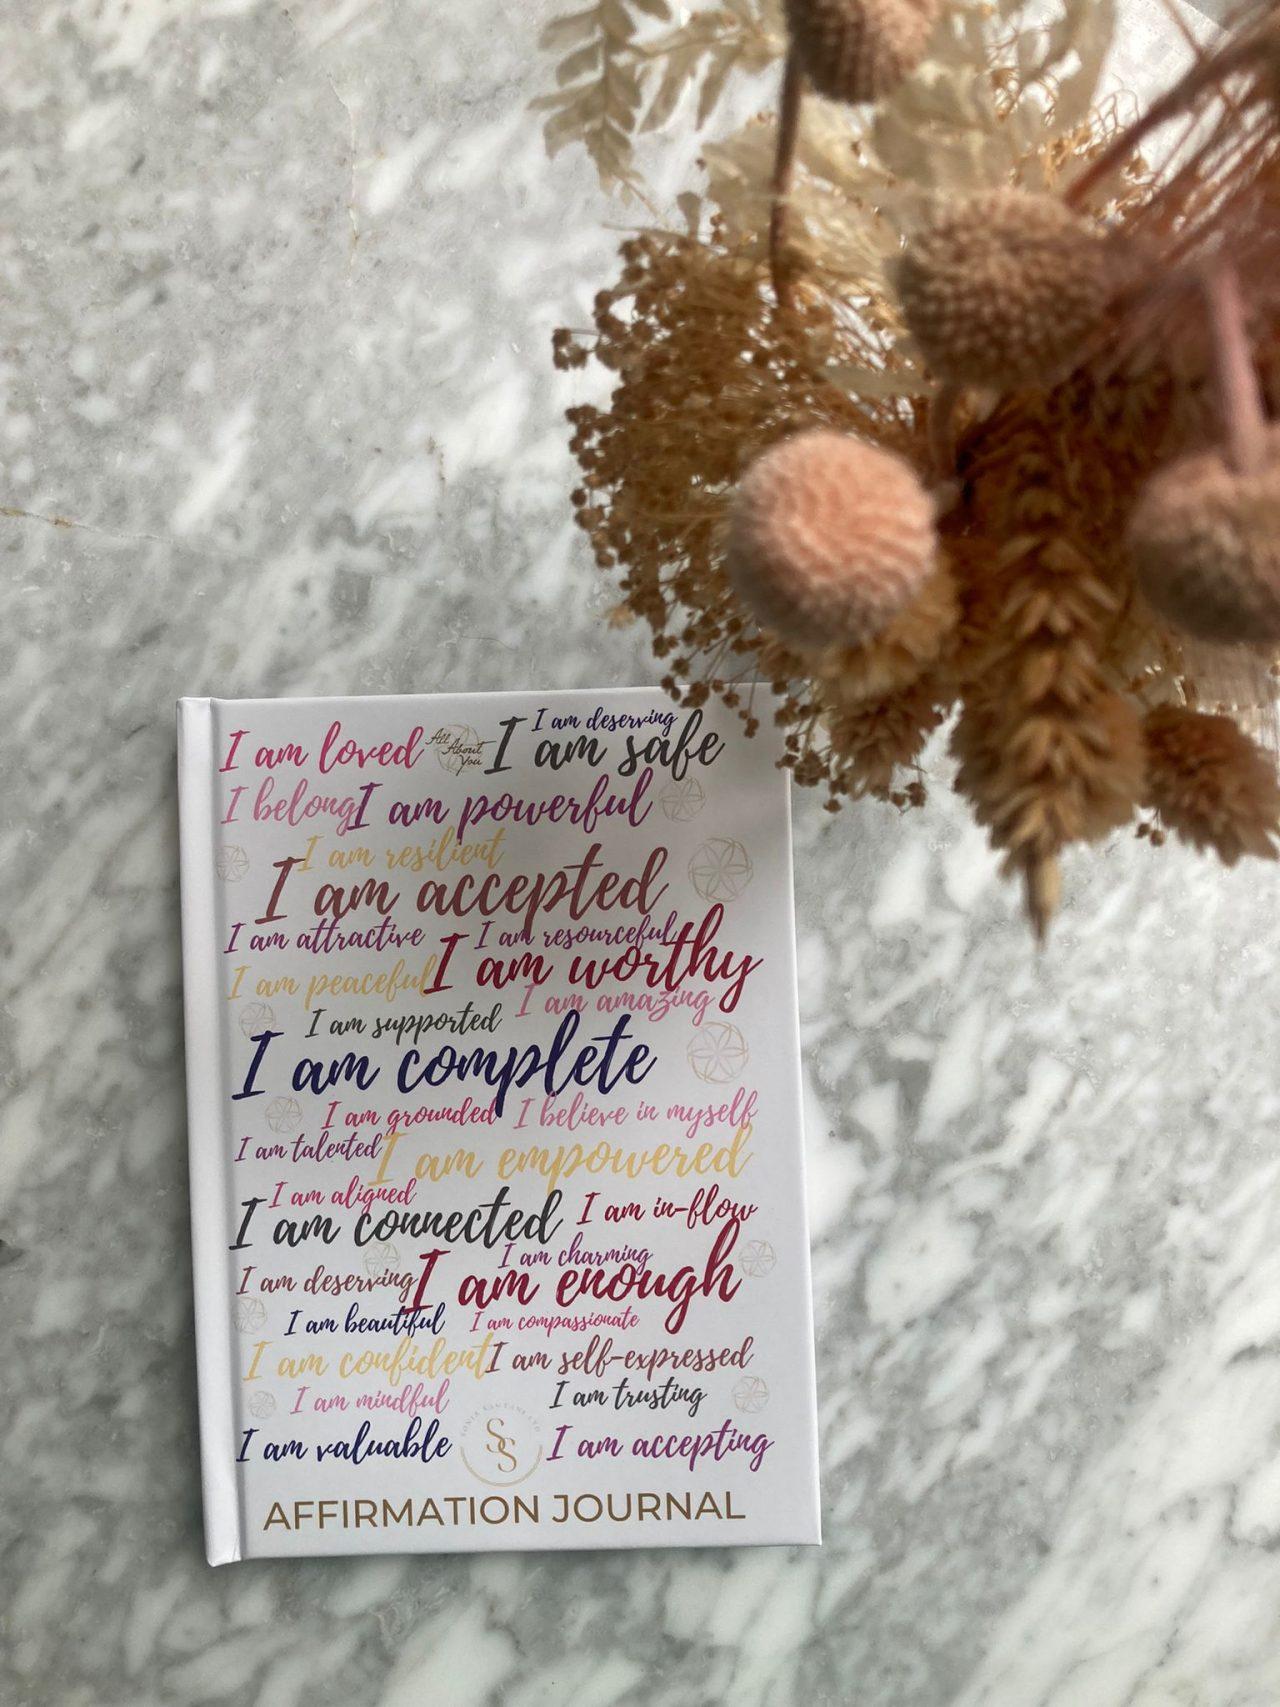 I am loved
All About You
I am deserving
I am safe
I belong
I am powerful
I am resilient
I am accepted
I am attractive
I am resourceful
I am peaceful
I am worthy
I am amazing
I am supported
I am complete
I am grounded
I believe in myself
I am talented
I am empowered
I am aligned
I am connected
I am in-flow
I am charming
I am deserving
I am enough
I am beautiful
I am compassionate
I am confident
I am self-expressed
I am mindful
I am trusting
I am valuable
SS
I am accepting
AFFIRMATION JOURNAL